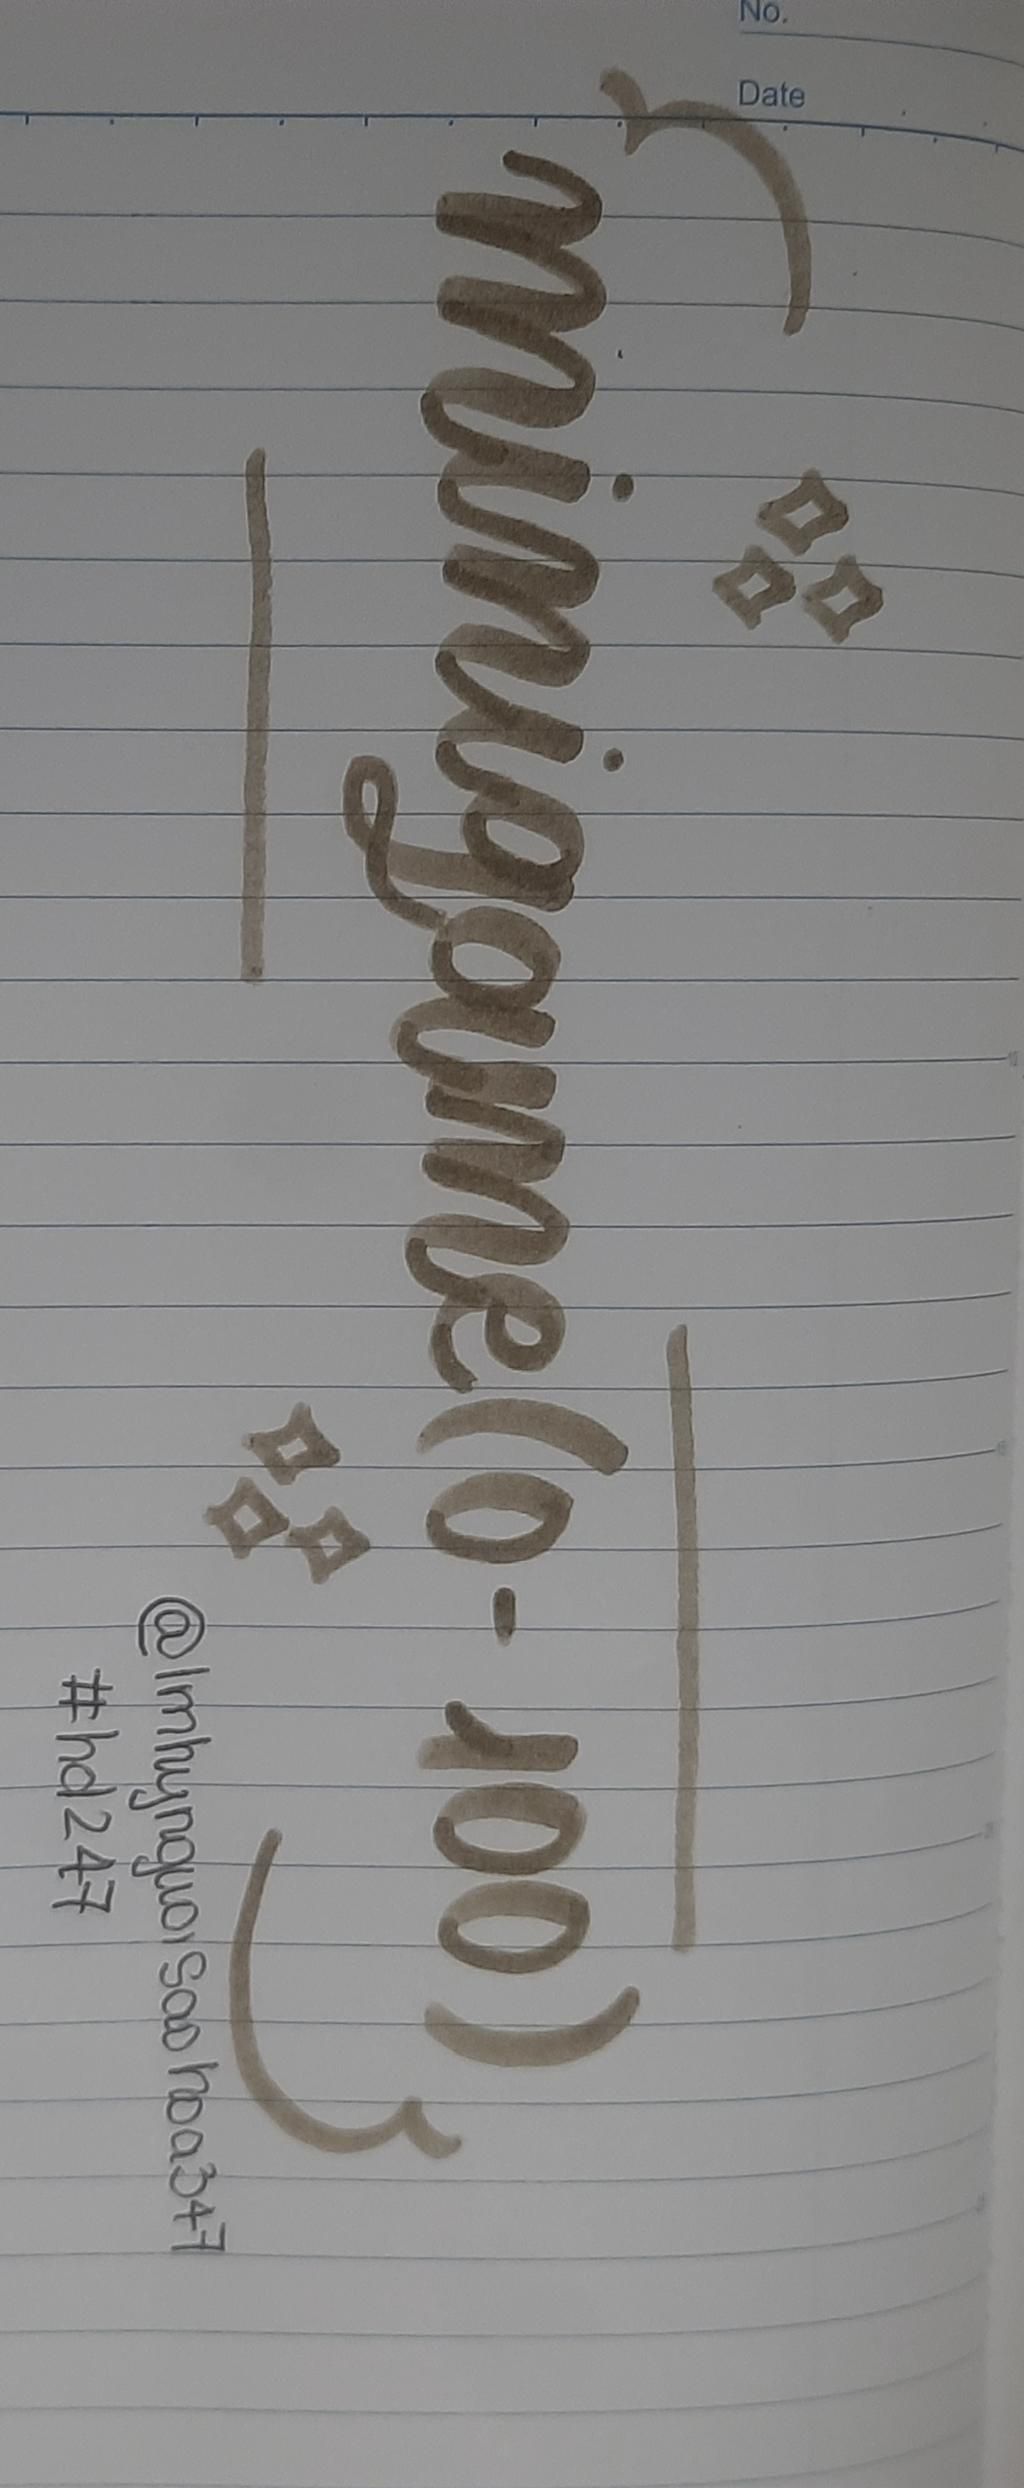 No.
Date
minigame(0 - 100)
@lmhynguoisaohoa347
#hd247